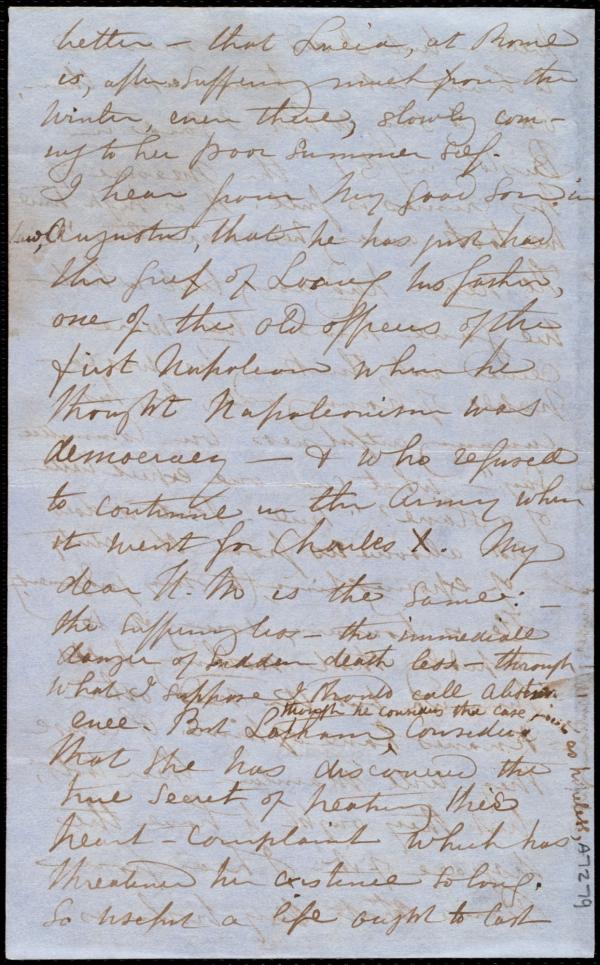 better – that Lucia, at Rome
is, after suffering much from the
Winter, even there, slowly com-
ing to her poor summer self.
I hear from my good Son-in
law, Augustus, that he has just had
the grief of Losing his father,
one of the old officers of the
first Napoleon when he
thought Napoleonism was
democracy – & who refused
to continue in the Army when
it went for Charles X. My
dear H. M is the same: –
the suffering less – the immediate
danger of sudden death less – through
what I suppose I should call
But Latham, considers
though he considers the case
as hopeless,
that she has discovered the
true secret of treating this
heart-complaint which has
threatened her existence so long.
So useful a life ought to last
A7279